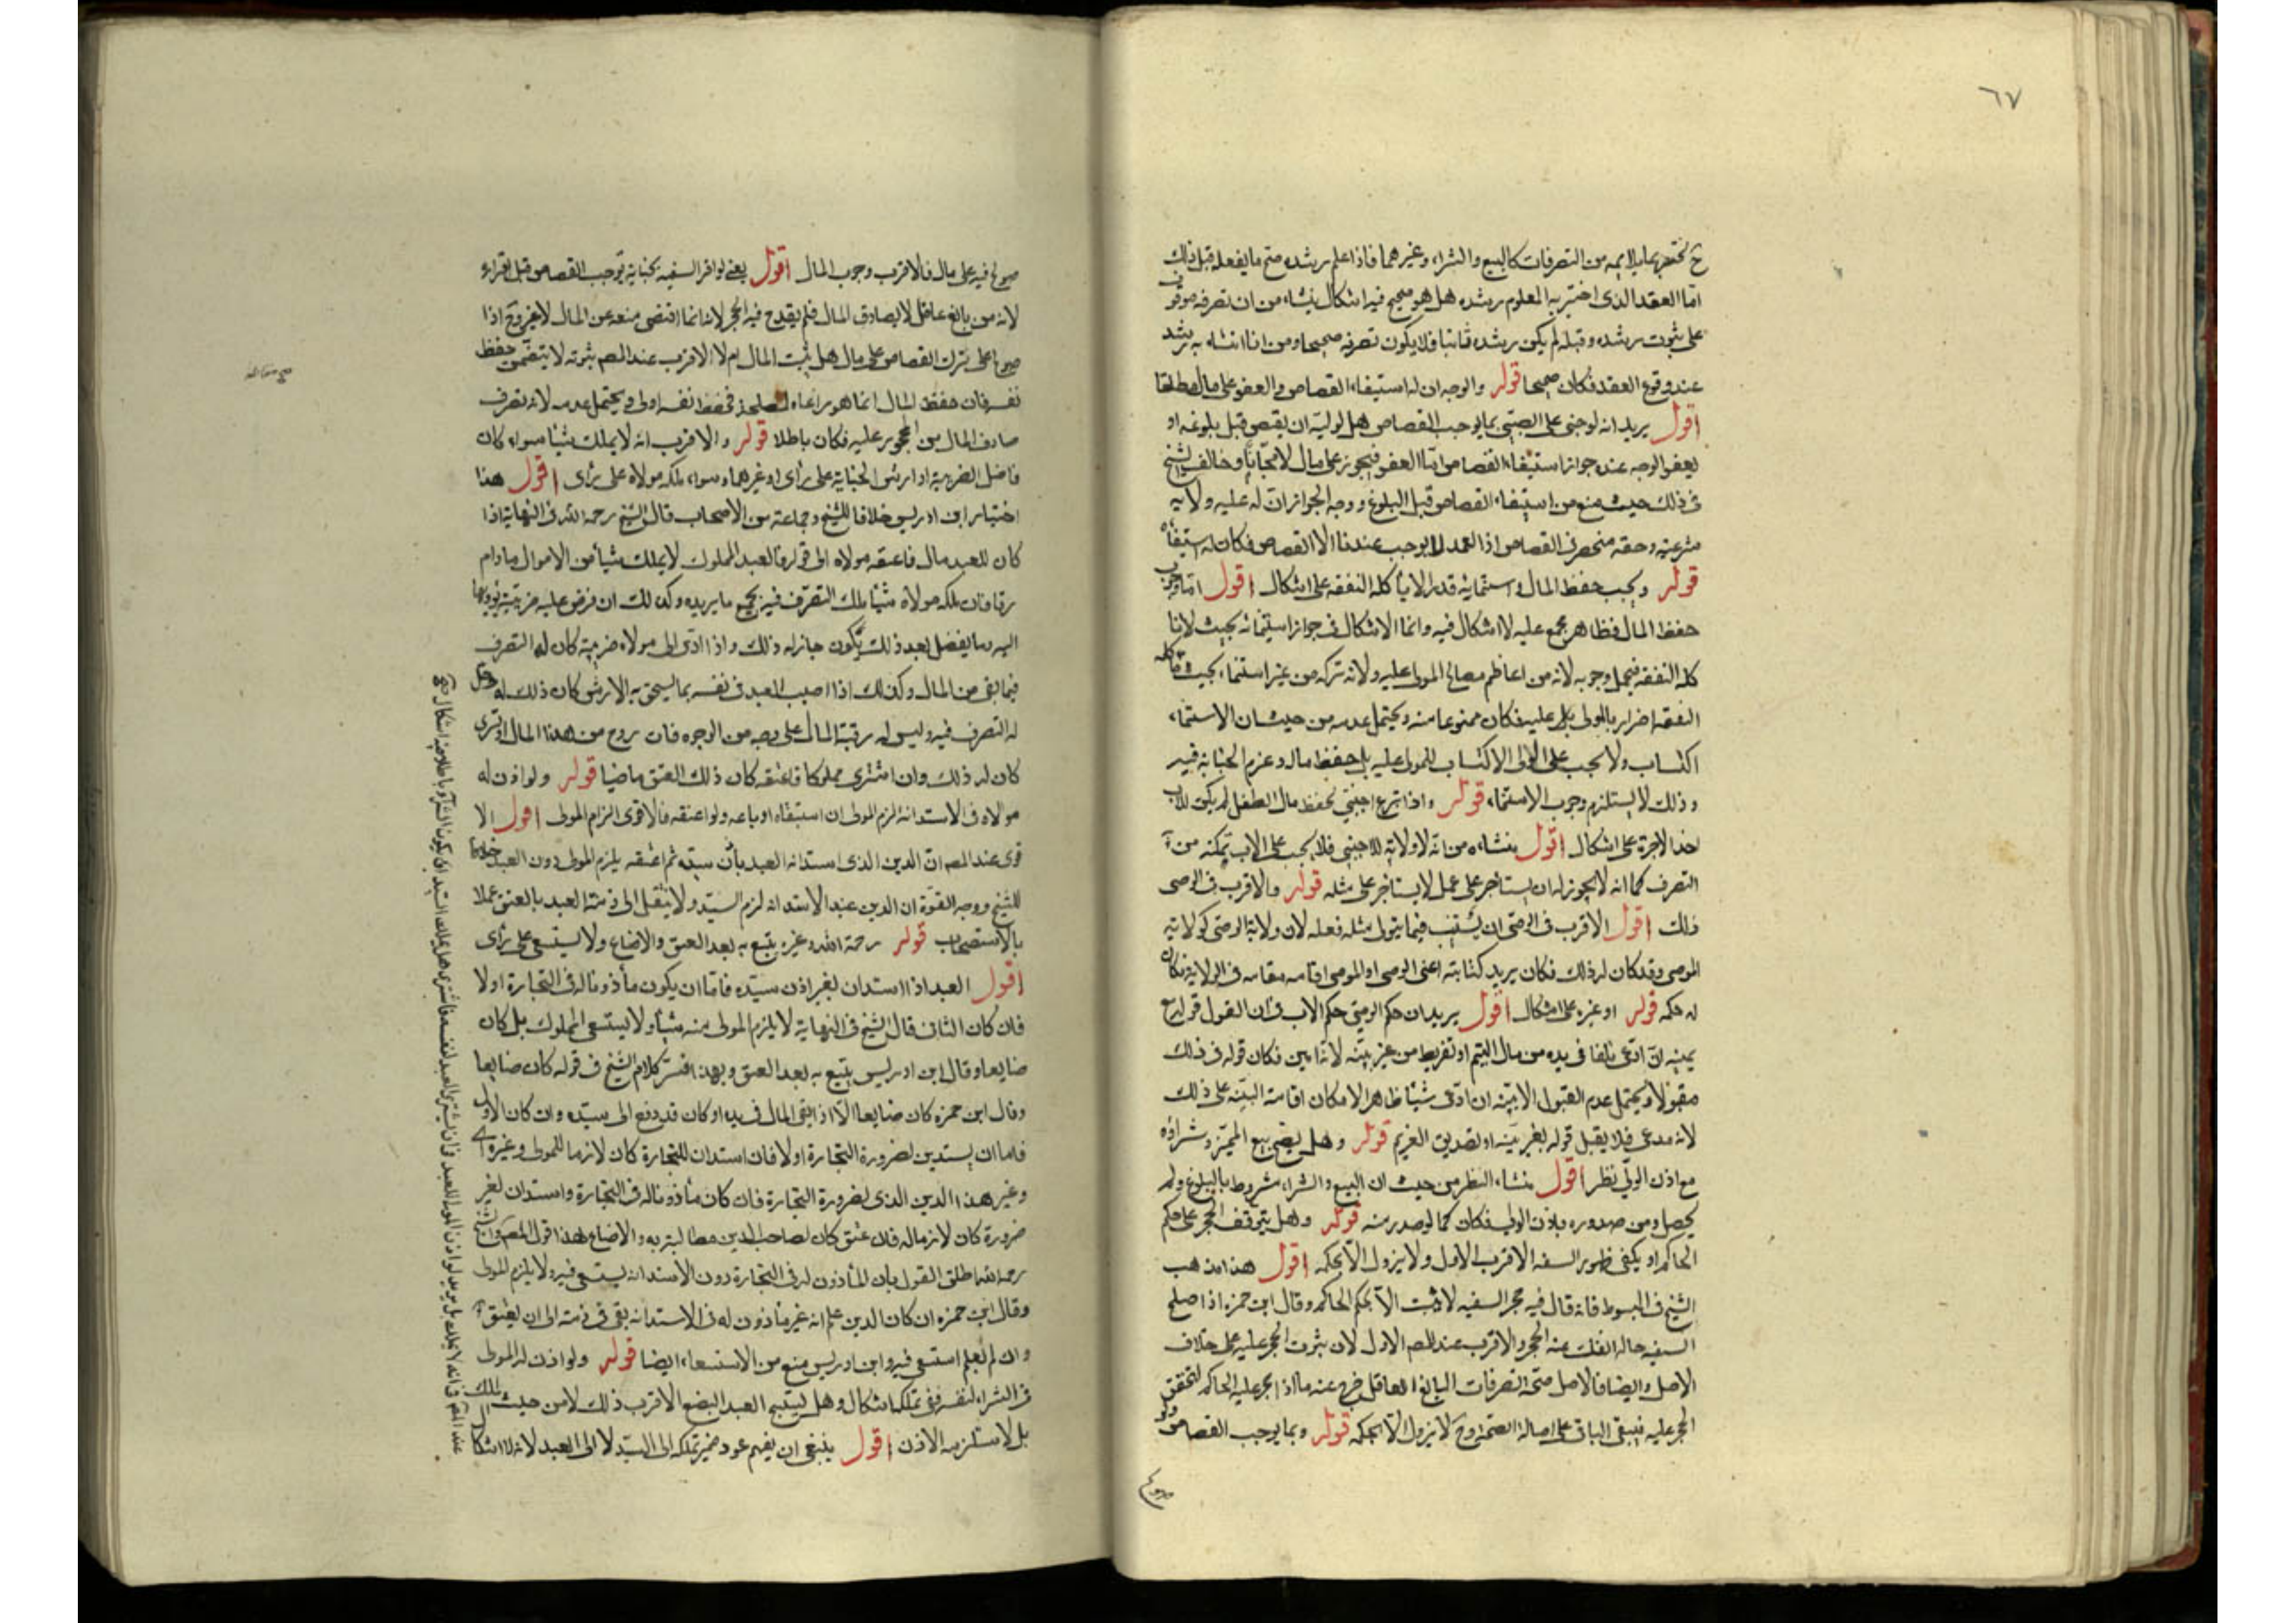 ٦٧
ح يختبر بما يلايمه من التصرفات كالبيع والشراء وغيرهما فاذا علم رشده صح ما يفعله قبل ذلك
امّا العقد الذى اختبر به المعلوم رشده هل هو صحيح فيه اشكال ينشاء من ان تصرفه موقوف
على ثبوت رشده وقبله لم يكن رشده ثابتا فلا يكون تصرفه صحيحا ومن انا انشاه به رشد
عند وقوع العقد فكان صحيحا قوله والوجه ان له استيفاء القصاص والعفو على مال مطلقا
اقول يريد انه لو جنى على الصبّى بما يوجب القصاص هل لوليّه ان يقتص قبل بلوغه او
يعفو الوجه عنده جواز استيفاء القصاص امّا العفو فيجوز على مال لا مجانا وخالف الشيخ
فى ذلك حيث منع من استيفاء القصاص قبل البلوغ ووجه الجواز انّ له عليه ولايه
شرعيّة وحقه منحصر فى القصاص اذ العمد لا يوجب عندنا الا القصاص فكان له استيفاه
قوله ويجب حفظ المال واستنمائه قدر الا يأكله النفقه على اشكال اقول امّا وجوب
حفظ المال فظاهر مجمع عليه لا اشكال فيه وانما الاشكال فى جواز استنمائه بحيث لا تا
كله النفقه فيحمل وجوبه لانه من اعاظم مصالح المولى عليه ولانه تركه من غير استنماء بحيث تأكله
النفقه اضرار بالمولى عليه فكان ممنوعا منه ويحتمل عدمه من حيث ان الاستنماء
اكتساب ولا يجب على الولى الاكتساب للمولى عليه بل حفظ ماله وعزم الجنايه فيه
وذلك لا يستلزم وجوب الاستنماء قوله واذا تبرع اجنبّى بحفظ مال الطفل لم يكن للاب
اخذ الاجرة على اشكال اقول ينشاء من انه لا ولاية للاجنبى فلا يجب على الاب تمكنه من
التصرف كما انه لا يجوز له ان يستاجر على عمل لا يستاجر على مثله قوله والاقرب فى الوصى
ذلك اقول الاقرب فى الوصّى ان يستنيب فيما يتولى مثله فعله لان ولاية الوصّى كولاية
الموصى وقد كان له ذلك فكان يريد كنايته اعنى الوصى او الموصى اقامه مقامه فى الولايه فكان
له حكمه قوله او غيره على اشكال اقول يريد ان حكم الوصّى حكم الاب فى ان القول قوله مع
يمينه ان ادّعى تلفا فى يده من مال اليتيم او تفريط من غير بيّنه لانّه امين فكان قوله فى ذلك
مقبولا ويحتمل عدم القبول الا ببيّنه ان ادّعى شيئا ظاهرا لامكان اقامة البيّنه على ذلك
لانه مدعى فلا يقبل قوله بغير بيّنه او تصديق الغريم قوله وهل يصح بيع المميّز وشراؤه
مع اذن الولّى نظر اقول ينشاء النظر من حيث ان البيع والشراء مشروط بالبلوغ ولم
يحصل ومن صدوره باذن الولى فكان كما لو صدر منه قوله وهل يتوقف الحجر على حكم
الحاكم او يكفى ظهور السفه الاقرب الاول ولا يزول الّا بحكمه اقول هذا مذهب
الشيخ فى المبسوط فانه قال فيه حجر السفيه لا يثبت الّا بحكم الحاكم وقال ابن حمزه اذا اصلح
السفيه حاله انفك عنه الحجر والاقرب عند المص الاول لان ثبوت الحجر عليه على خلاف
الاصل وايضا فالاصل صّحة تصرفات البالغ العاقل خرج عنه ما اذا حجر عليه الحاكم لتحقق
الحجر عليه فيبقى الباقى على اصالة الصّحة وح لا يزول الّا بحكمه قوله وبما يوجب القصاص ولو
صولح
صولح فيه على مال فالاقرب وجوب المال اقول يعنى لو اقر السفيه بجناية توجب القصاص قبل اقراره
لانه من بالغ عاقل لا يصادف المال فلم يقدح فيه الحجر لانه انما اقتضى منعه عن المال لا غير وح اذا
صولح على ترك القصاص على مال هل يثبت المال ام لا الاقرب عند المص ثبوته لا يتضمن حفظ
نفسه فان حفظ المال انما هو مراعاه لمصلحته فحفظ نفسه اولى ويحتمل عدمه لانه تصرف
صادف المال من المحجور عليه فكان باطلا قوله والاقرب انه لا يملك شيئا سواء كان
فاضل الضريبة او ارش الجناية على رأى او غيرهما وسواء ملكه مولاه على رأى اقول هذا
اختيار ابن ادريس خلافا للشيخ وجماعة من الاصحاب قال الشيخ رحمه الله فى النهاية اذا
كان للعبد مال فاعتقه مولاه الى قوله والعبد المملوك لا يملك شيأ من الاموال ما دام
رقا فان ملكه مولاه شيئا ملك التصرّف فيه بجميع ما يريده وكذلك ان فرض عليه ضريبة يؤديها
اليه وما يفضل بعد ذلك يكون جاز له ذلك واذا ادّى الى مولاه ضريبته كان له التصرف
فيما بقى من المال وكذلك اذا اصيب العبد فى نفسه بما يستحق به الارش كان ذلك له وحل
له التصرف فيه وليس له رقبة المال على وجه من الوجوه فان تزوج من هذا المال او تسرى
كان له ذلك وان اشترى مملوكا فاعتقه كان ذلك العتق ماضيا قوله ولو اذن له
مولاه فى الاستدانة لزم المولى ان استبقاه او باعه ولو اعتقه فالاقوى الزام المولى اقول الا
قوى عند المص انّ الدين الذى استدانه العبد باذن سيّده ثم اعتقه يلزم المولى دون العبد خلافا
للشيخ ووجه القوّة ان الدين عند الاستدانه لزم السيّد ولا ينتقل الى ذمّة العبد بالعتق عملا
بالاستصحاب قوله رحمة الله وغيره يتبع به بعد العتق والاضاع ولا يستسعى على رأى
اقول العبد اذا استدان بغير اذن سيّده فامّا ان يكون مأذونا له فى التجارة او لا
فان كان الثانى قال الشيخ فى النهاية لا يلزم المولى منه شيأ ولا يستسعى المملوك بل كان
ضايعا وقال ابن ادريس يتبع به بعد العتق وبهذا فسّر كلام الشيخ فى قوله كان ضايعا
وقال ابن حمزه كان ضايعا الّا اذا بقى المال فى يده او كان قد دفع الى سيّده وان كان الاول
فاما ان يستدين لضرورة التجارة او لا فان استدان للتجارة كان لازما للمولى وغيره اى
وغير هذا الدين الذى لضرورة التجارة فان كان مأذونا له فى التجارة واستدان لغير
ضرورة كان لازما له فان عتق كان لصاحب الدين مطالبته به والاضاع هذا قول المص والشيخ
رحمه الله اطلق القول بان المأذون له فى التجارة دون الاستدانه يستسعى فيه ولا يلزم المولى
وقال ابن حمزه ان كان الدين علم انه غير مأذون له فى الاستدانه بقى فى ذمته الى ان يعتق
وان لم يعلم استسعى فيه وابن ادريس منع من الاستسعاء ايضا قوله ولو اذن له المولى
فى الشراء لنفسه ففى تملكه اشكال وهل يستبيح العبد البضع الاقرب ذلك لا من حيث الملك
بل لاستلزامه الاذن اقول ينبغى ان يفهم عود ضمير تملكه الى السيّد لا الى العبد لانه لا اشكال